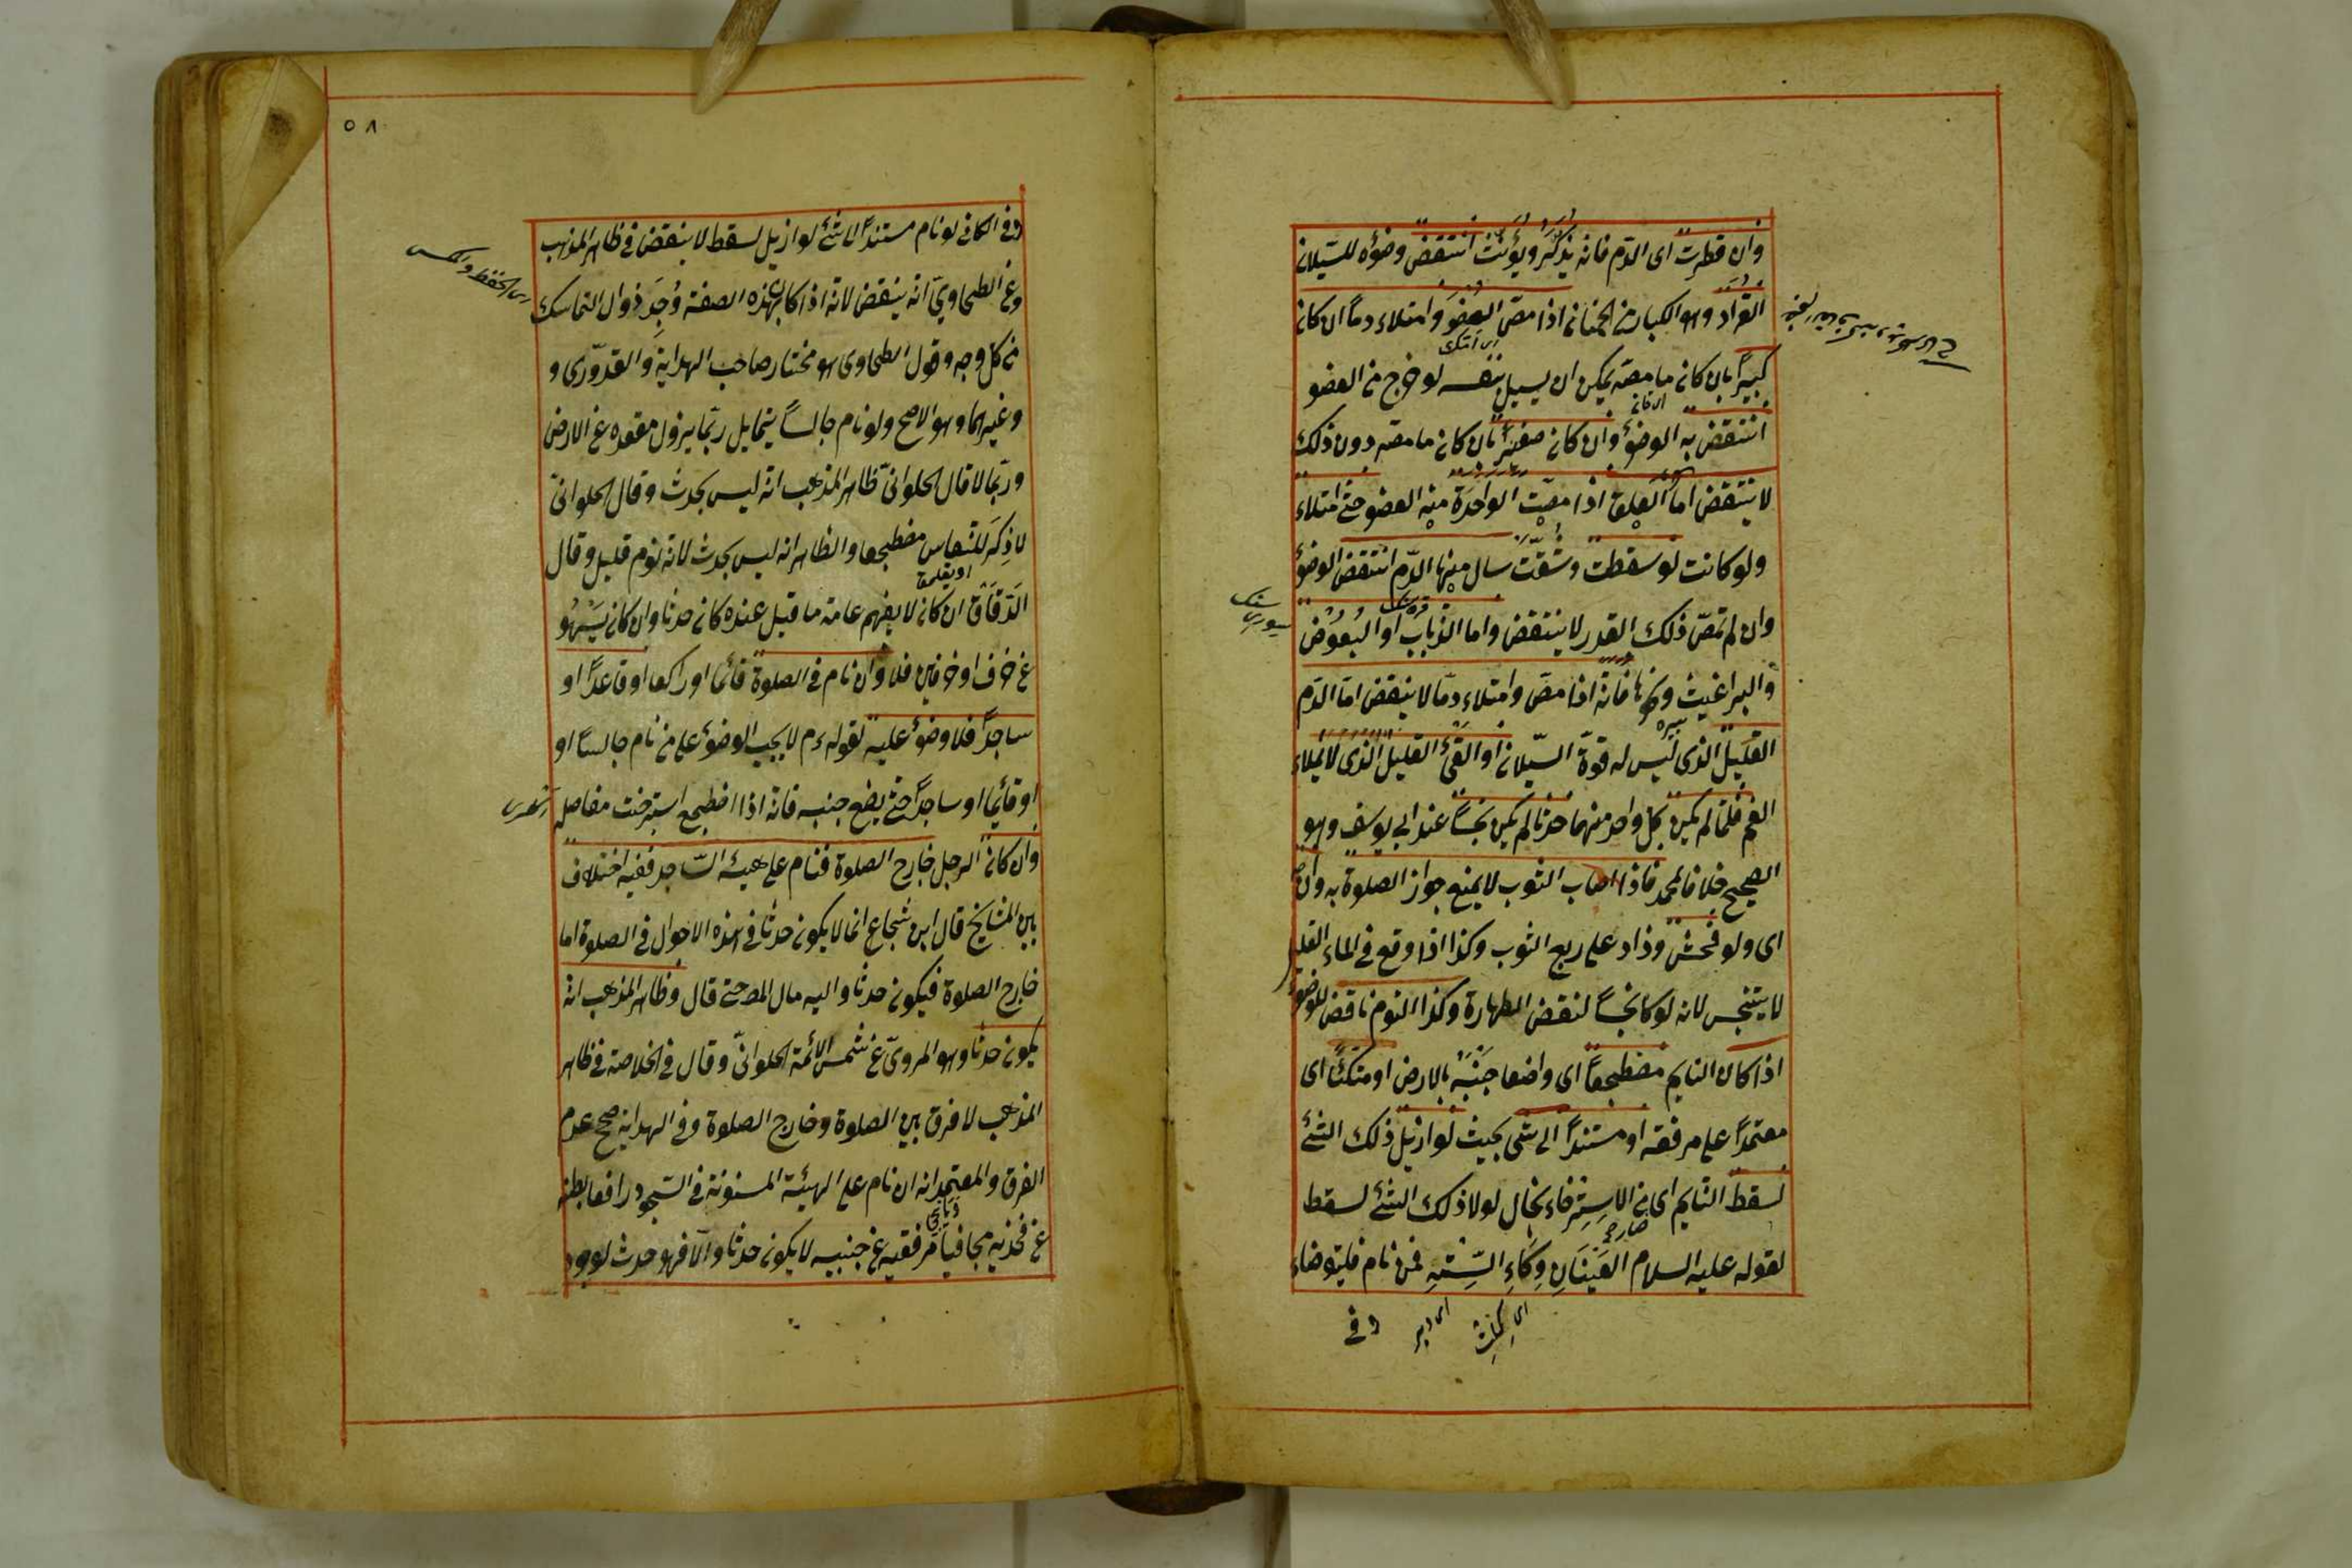 وان قطرت اى الدم فانه يذكر ويؤنث انتقض وضوؤه للسيلان
القراد وهو الكبار من الحمنان اذا مص العضو وامتلاء دماً ان كان
كبيراً بان كان ما مصه يمكن ان يسيل بنفسه لو خرج من العضو
انتقض به الوضوء وان كان صغيراً بان كان ما مصه دون ذلك
لا ينتقض اما العلق اذا مصت الواحدة منه العضو حتى امتلاء
ولو كانت لو سقطت وشقت سال منها الدم انتقض الوضوء
وان لم تمص ذلك القدر لا ينتقض واما الذباب او البعوض
والبراغيث ونحوها فانه اذا مص وامتلاء دما لا ينقض اما الدم
القليل الذى ليس له قوة السيلان او القئ القليل الذى لا يملاء
الفم فلما لم يكن كل واحد منهما حدثا لم يكن نجساً عند ابى يوسف وهو
الصحيح خلافا لمحمد فاذا اصاب الثوب لا يمنع جواز الصلوة به وان
اى ولو فحش وزاد على ربع الثوب وكذا اذا وقع فى الماء القليل
لا يتنجس لانه لو كان نجساً لنقض الطهارة وكذا النوم ناقض للوضوء
اذا كان النايم مضطجعاً اى واضعا جنبه بالارض او متكئاً اى
معتمداً على مرفقه او مستنداً الى شئ بحيث لو ازيل ذلك الشئ
لسقط النايم اى من الاسترخاء بحال لولا ذلك الشئ لسقط
لقوله عليه السلام العينان وكاء السته فمن نام فليتوضاء
اى دبر
وفى
٥٨
وفى الكافى لو نام مستنداً الا شئ لو ازيل لسقط لا ينقض فى ظاهر المذهب
وعن الطحاوى انه ينقض لانه اذا كان بهذه الصفة وجد زوال التماسك
من كل وجه وقول الطحاوى هو مختار صاحب الهداية والقدورى و
وغيرهما وهو الاصح ولو نام جالساً يتمايل ربما يزول مقعده عن الارض
وربما لا قال الحلوانى ظاهر المذهب انه ليس بحدث وقال الحلوانى
لا ذكر للنعاس مضطجعا والظاهر انه ليس بحدث لانه نوم قليل وقال
الدقاق ان كان لا يفهم عامة ما قيل عنده كان حدثا وان كان يسهو
عن حرف او حرفين فلا وان نام فى الصلوة قائما او راكعا او قاعداً او
ساجداً فلا وضوء عليه لقوله عم لا يجب الوضوء على من نام جالسا او
او قائما او ساجداً حتى يضع جنبه فانه اذا اضطجع استرخت مفاصله
وان كان الرجل خارج الصلوة فنام على هيئة الساجد ففيه اختلاف
بين المشايخ قال ابن شجاع انما لا يكون حدثا فى هذه الاحوال فى الصلوة اما
خارج الصلوة فيكون حدثا واليه مال المص حتى قال وظاهر المذهب انه
يكون حدثا وهو المروى عن شمس الائمة الحلوانى وقال فى الخلاصة فى ظاهر
المذهب لا فرق بين الصلوة وخارج الصلوة وفى الهداية صحح عدم
الفرق والمعتمد انه ان نام على الهيئة المسنونة فى السجود رافعا بطنه
عن فخذيه مجافيا مرفقيه عن جنبيه لا يكون حدثا والا فهو حدث لوجود